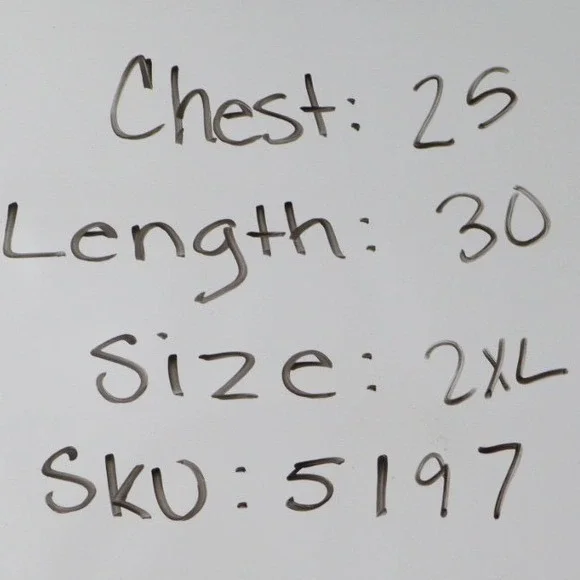 Chest: 25
Length: 30
Size: 2XL
SKU: 5197